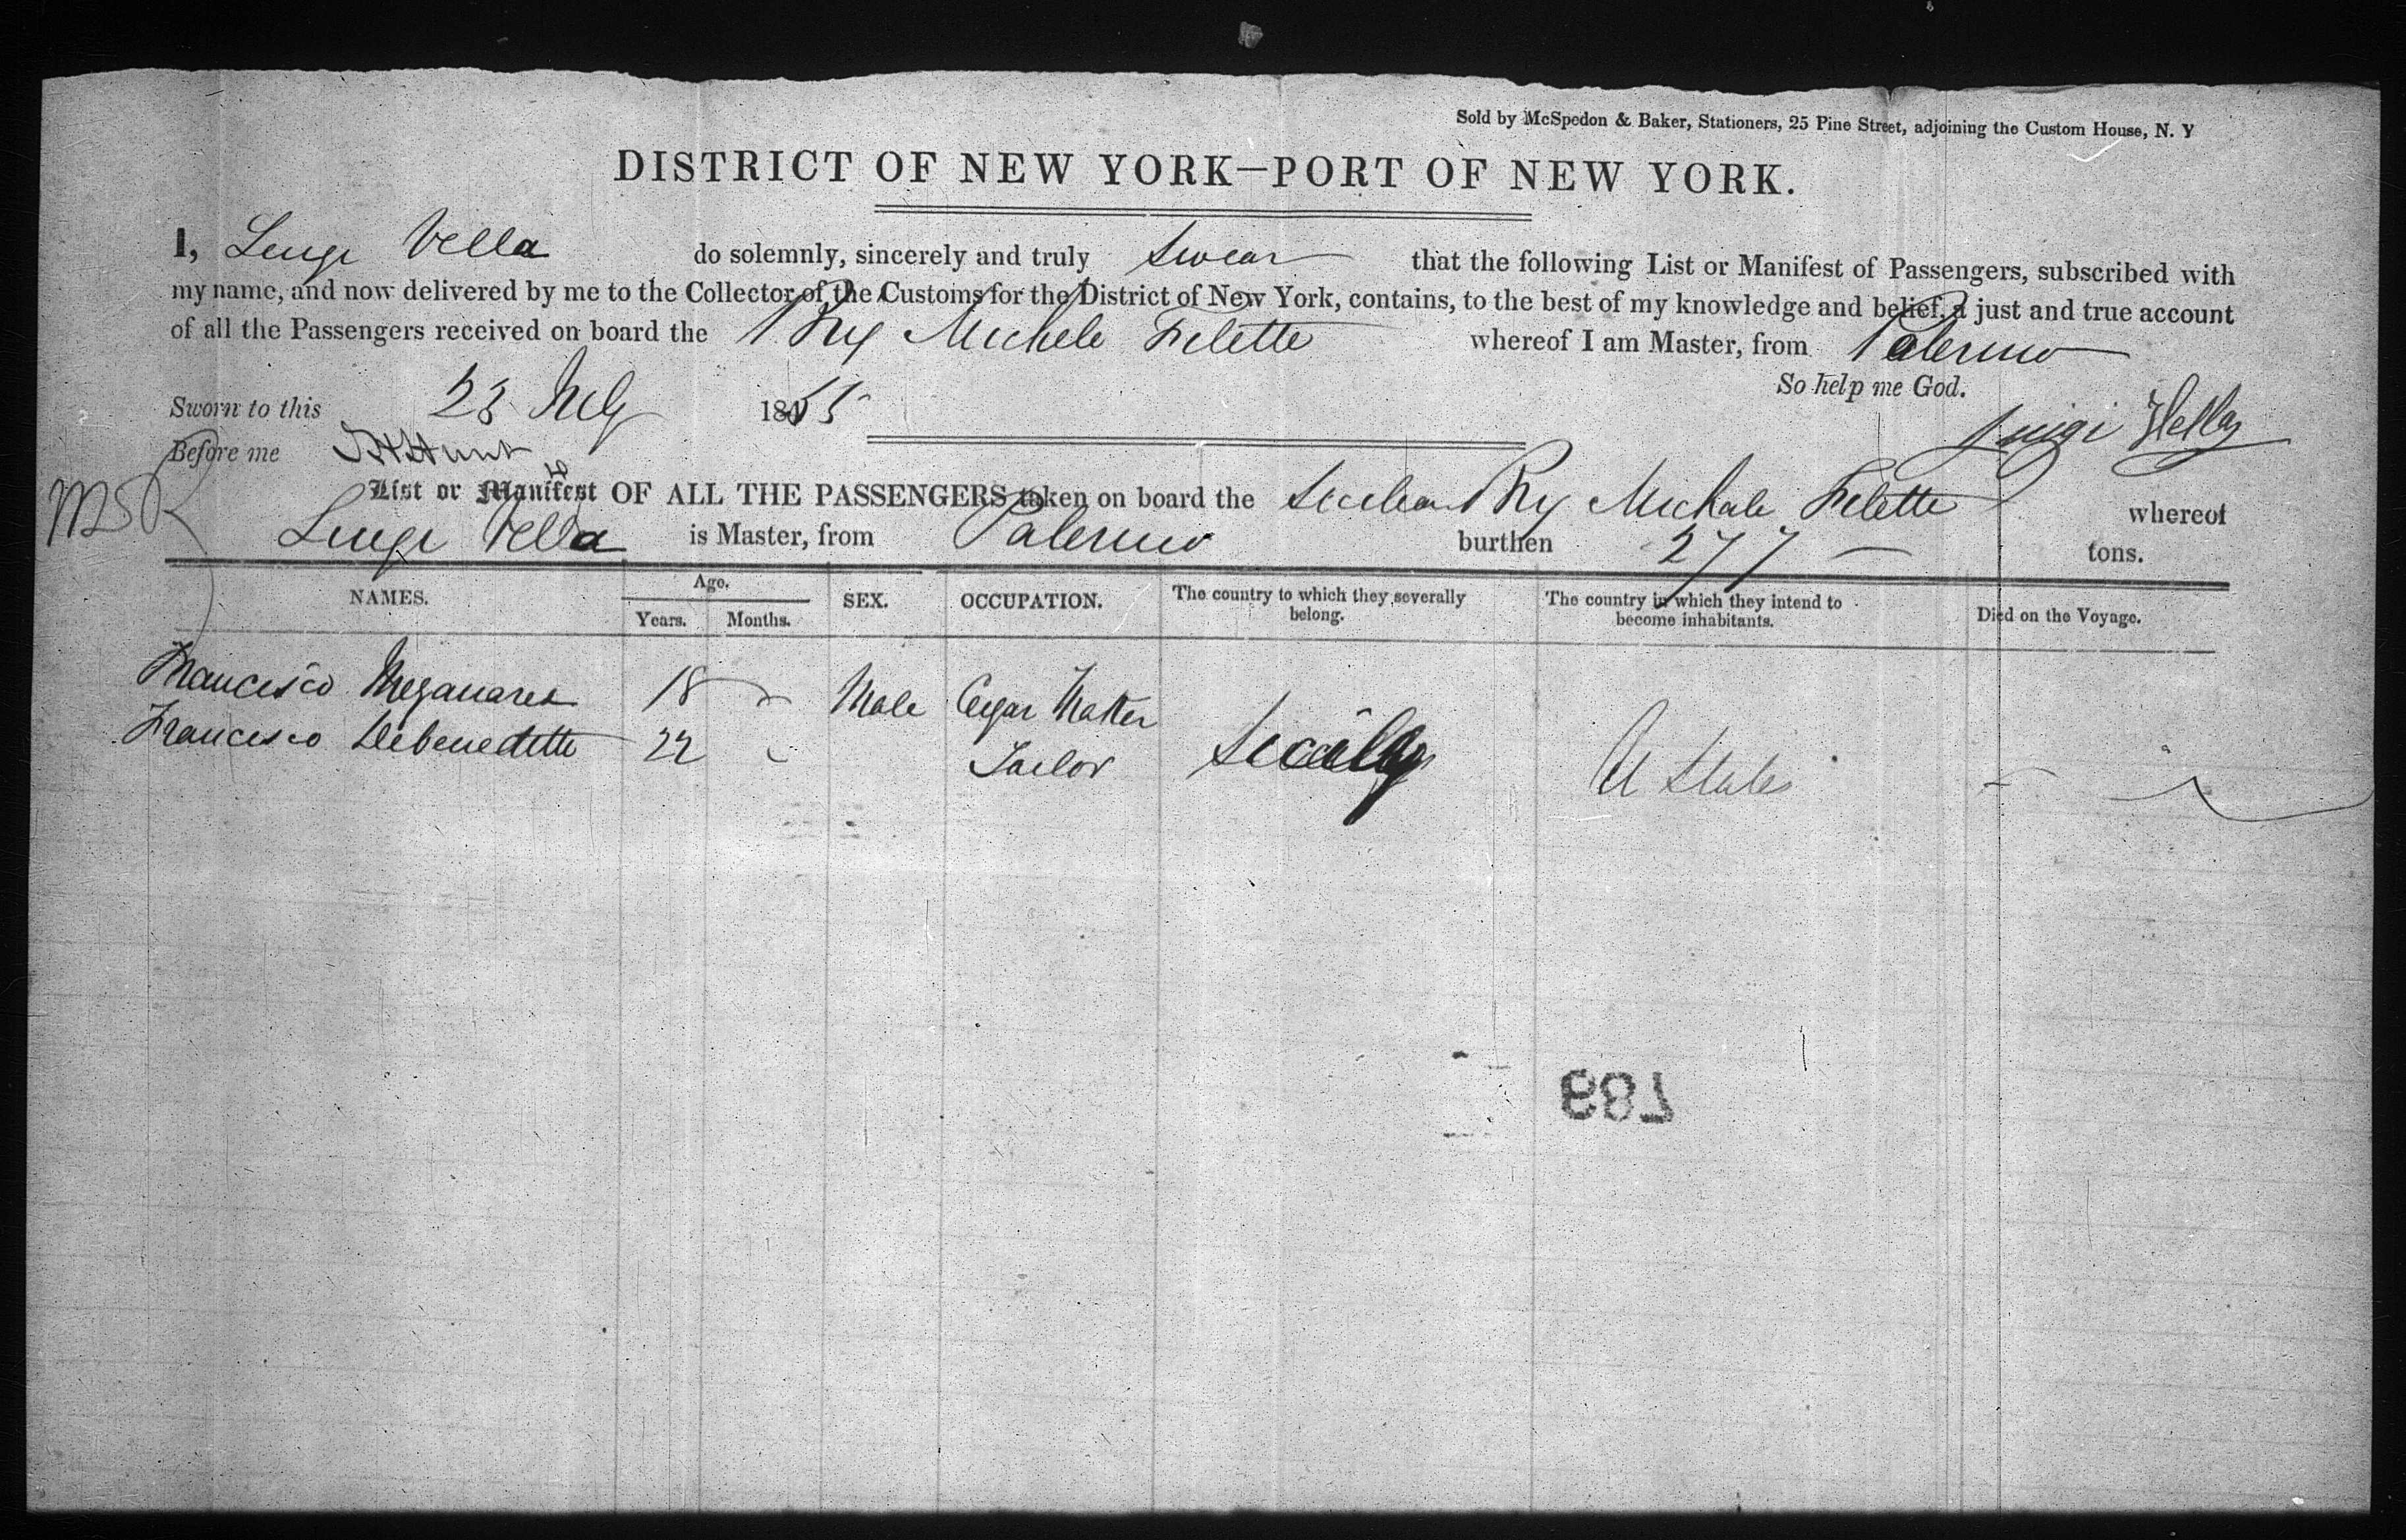 Sold by McSpedon & Baker, Stationers, 25 Pine Street, adjoining the Custom House, N. Y
DISTRICT OF NEW YORK—PORT OF NEW YORK.
I, Luigi Vella do solemnly, sincerely and truly swear that the following List or Manifest of Passengers, subscribed with
my name, and now delivered by me to the Collector of the Customs for the District of New York, contains, to the best of my knowledge and belief, a just and true account
of all the Passengers received on board the Brig Michele Filette whereof I am Master, from Palermo
So help me God.
Sworn to this 23 July 1855
Luigi Vella
Before me
List or Manifest OF ALL THE PASSENGERS taken on board the Sicilian Brig Michele Filette whereof
Luigi Vella is Master, from Palermo burthen 277 tons.
NAMES. Age. Years. Months. SEX. OCCUPATION. The country to which they severally belong. The country in which they intend to become inhabitants. Died on the Voyage.
Francisco 18 Male Cegar Maker
Francisco Debenedette 22 Tailor Sicily U States
783